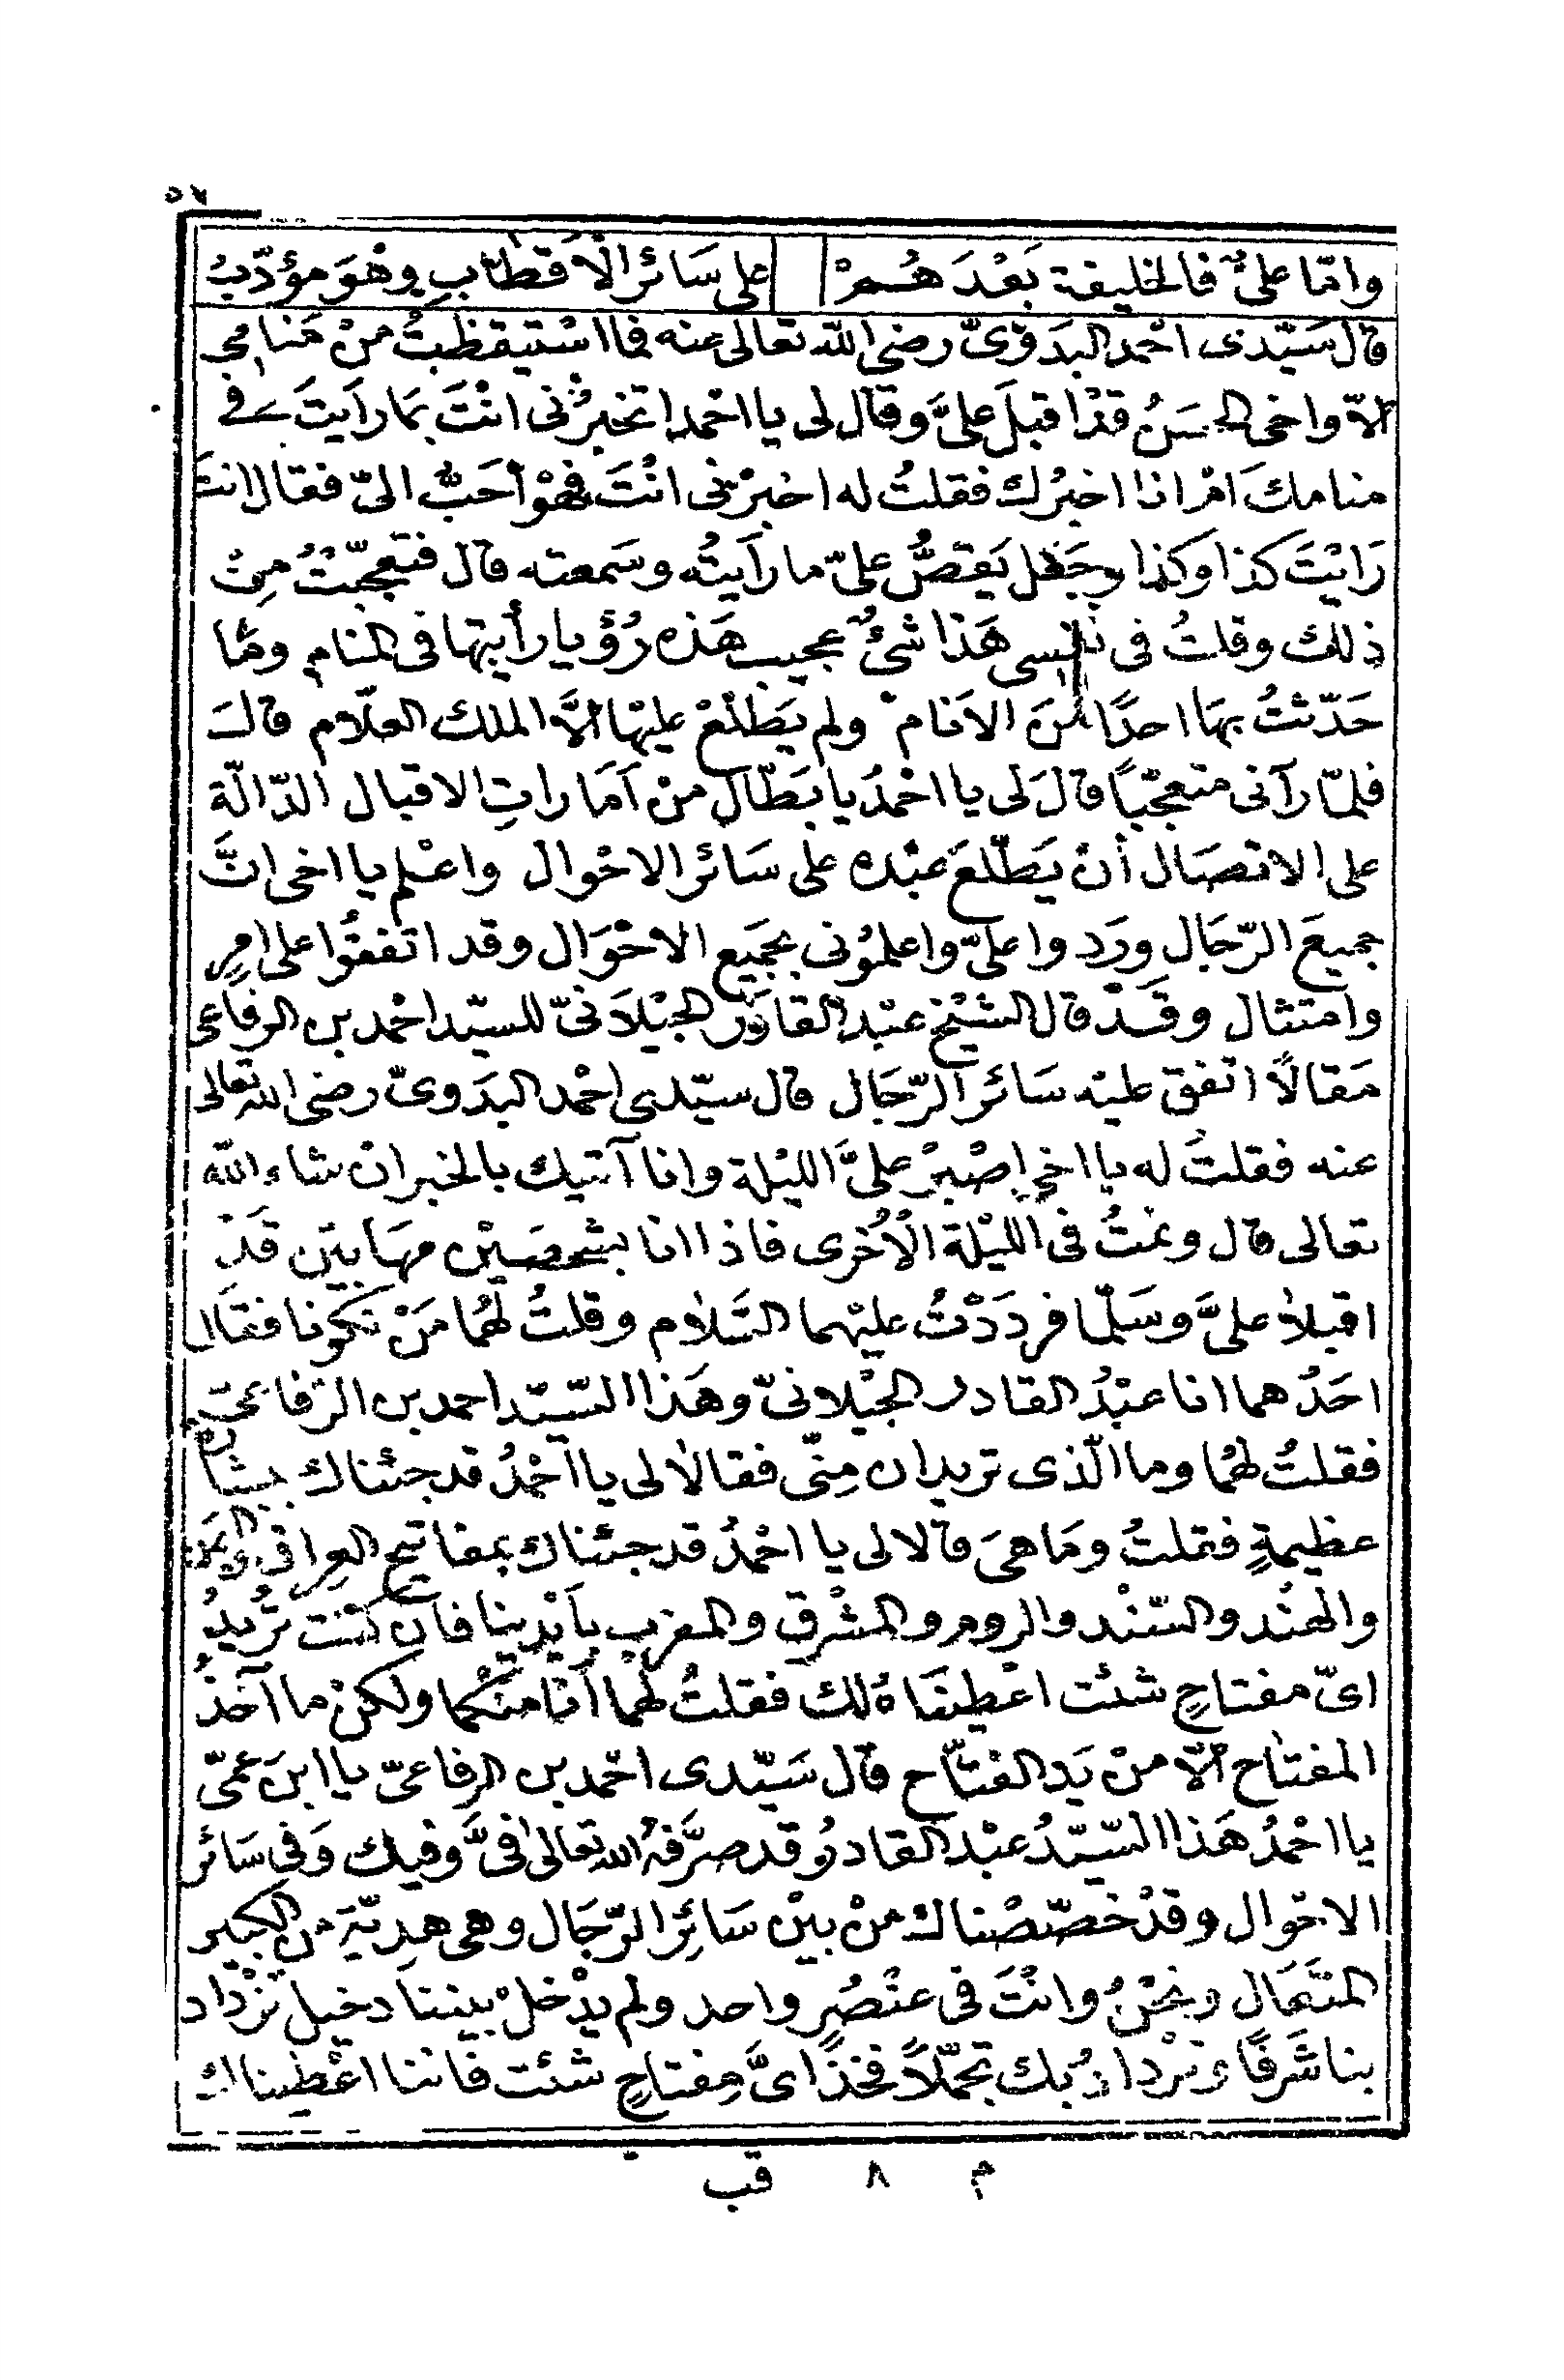 ٥٧
وامّا علىٌّ فالخليفة بَعْدَ هُمْ على سَائر الْاَقطَابِ وهْوَ مؤدّبُ
قال سَيّدى احْمد البَدَوىّ رضى الله تعالى عنه فما اسْتيقظتُ منْ مَنامى
الاّ واخى الحسَنُ قدْ اقبلَ علىَّ وقال لى يا احْمد اتخبرُنى انْتَ بمَا رأيتَ فى
منامكَ امْ اذا اخبرُك فقلتُ له اخبرْنى انْتَ فهْوَ أحَبُّ الىّ فقال انتَ
رَايْتَ كذا وكذا وجَعل يَقصُّ علىّ ما رَاَيتُه وسَمعته قال فتعجّبْتُ مِنْ
ذلك وقلتُ فى نفسى هَذا شئٌ عجيب هَذه رُؤيا رأيتها فى المنام ومَا
حَدّثتُ بهَا احدًا منَ الاَنام ولم يَطّلعْ عليْها الاَّ الملك العلاّم قالَ
فلمّا رآنى متعجّبًا قالَ لى يا احْمدُ يا بَطّال منْ اَمَاراتِ الاقبال الدّالّة
على الاتصَال أنْ يَطّلعَ عبْده على سَائر الاحْوال واعْلم يا اخى انَّ
جميعَ الرّجَال ورَدوا علىّ واعلمُونى بجَميع الاحْوَال وقد اتفقُوا على امرٍ
وامتثال وقَدْ قال الشيْخ عبْد القادر الجيْلاَنىّ للسيّد احْمد بن الرفاعى
مَقالاً اتفق عليْه سَائر الرّجَال قال سيّدى احْمد البَدَوىّ رضى الله تعالى
عنه فقلتُ له يا اخى اِصْبرْ علىَّ الليْلة وانا آتيك بالخبر ان شاء الله
تعالى قال ونمتُ فى الليْلة الْاُخرى فاذا انا بشخصَيْن مهَابيَن قَدْ
اقبلاَ علىَّ وسَلّما فردَدْتُ عليْهما السَّلام وقلتُ لهُمَا مَنْ تكونا فقَال
احَدُهما انا عبْدُ القادر الجيْلانىّ وهَذا السّيّد احمد بن الرّفاعىّ
فقلتُ لهُمَا وما الّذى تريدان مِنّى فقالا لى يا احْمدُ قد جئناك ببشارة
عظيمةٍ فقلتُ ومَا هىَ قالا لى يا احْمدُ قد جئناك بمفاتيح العِراق واليمَن
والهنْد والسّنْد والروم والمشْرق والمغرب بأيْدينا فان كنْت تُريدُ
اىّ مفتاحٍ شئت اعْطيْنَاهُ لك فقلتُ لهُمَا أنا منكُما ولكنْ ما آخذُ
المفتاح الاّ منْ يَد الفتّاح قال سَيّدى احْمد بن الرفاعىّ يا ابنَ عمّى
يا احْمدُ هَذا السّيّدُ عبْد القادر وقد صرَّفهُ الله تعالى فىَّ وفيك وَفى سَائر
الاحْوال وقدْ خصّصْناك منْ بيْن سَائِر الرّجَال وهى هديّةَ من الكبير
المتعَال ونحْنُ وانْتَ فى عنْصُرٍ واحد ولم يدْخلْ بيننا دخيل تزْداد
بنا شَرفًا ونزْدادُ بك تجمّلاً فخذْ اىَّ مِفتاحٍ شئت فاننا اعْطيناك
م ٨ قب